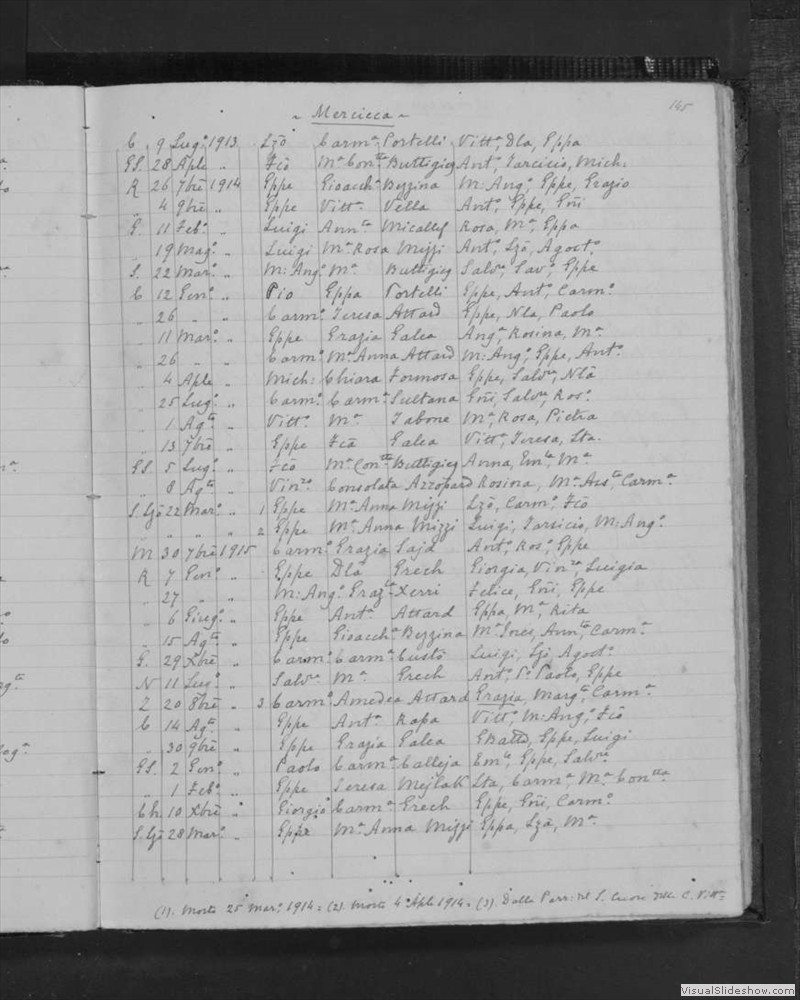 145
~ Mercieca ~
C 9 Lug.o 1913 Lzō Carm.a Portelli Vitt.a, Dla, Eppa
GS. 28 Aple " Fcō M.a Con.tta Buttigieg Ant.o, Tarcisio, Mich:
R 26 7bre 1914 Eppe Gioacch.a Bezzina M: Ang.o, Eppe, Grazio
" 4 9bre " Eppe Vitt.a Vella Ant.o, Eppe, Gñi
G. 11 Feb.o " Luigi Ann.ta Micallef Rosa, M.a, Eppa
" 19 Mag.o " Luigi M.a Rosa Mizzi Ant.o, Lzō, Agost.o
S. 22 Mar.o " M: Ang.o M.a Buttigieg Salv.re, Sav.o, Eppe
C 12 Gen.o " Pio Eppa Portelli Eppe, Ant.o, Carm.o
" 26 " " Carm.o Teresa Attard Eppe, Nla, Paolo
" 11 Mar.o " Eppe Grazia Galea Ang.a, Rosina, M.a
" 26 " " Carm.o M.a Anna Attard M: Ang.o, Eppe, Ant.o
" 4 Aple " Mich: Chiara Formosa Eppe, Salv.re, Nlā
" 25 Lug.o " Carm.o Carm.a Sultana Gñi, Salv.re, Ros.o
" 1 Ag.to " Vitt.o M.a Tabone M.a, Rosa, Pietra
" 13 7bre " Eppe Fcā Galea Vitt.o, Teresa, Sta.
GS. 5 Lug.o " Fcō M.a Con.tta Buttigieg Anna, Em.le, M.a
" 8 Ag.to " Vin.zo Consolata Azzopardi Rosina, M.a Ass.ta, Carm.a
S. Lzō 22 Mar.o " 1 Eppe M.a Anna Mizzi Lzō, Carm.o, Fcō
" " " " 2 Eppe M.a Anna Mizzi Luigi, Tarsicio, M: Ang.o
M 30 7bre 1915 Carm.o Grazia Sajd Ant.o, Ros.o, Eppe
R 7 Gen.o " Eppe Dla Grech Giorgia, Vin.za, Luigia
" 27 " " M: Ang.o Graz.la Xerri Felice, Gñi, Eppe
" 6 Giug.o " Eppe Ant.a Attard Eppa, M.a, Rita
" 15 Ag.to " Eppe Gioacch.a Bezzina M.a Ines, Ann.ta, Carm.a
G. 29 Xbre " Carm.o Carm.a Custō Luigi, Lzō, Agost.o
N 11 Lug.o " Salv.re M.a Grech Ant.o, P.o Paolo, Eppe
Z 20 8bre " 3 Carm.o Amedea Attard Grazia, Marg.ta, Carm.a
C 14 Ag.to " Eppe Ant.a Rapa Vitt.o, M: Ang.o, Fcō
" 30 9bre " Eppe Grazia Galea GBatta, Eppe, Luigi
GS. 2 Gen.o " Paolo Carm.a Calleja Em.le, Eppe, Salv.re
" 1 Feb.o " Eppe Teresa Mejlak Sta, Carm.a, M.a Con.tta
Ch. 10 Xbre " Giorgio Carm.a Grech Eppe, Gñi, Carm.o
S. Lzō 28 Mar.o " Eppe M.a Anna Mizzi Eppa, Lzā, M.a
(1). Morto 25 Mar.o 1914. = (2). Morto 4 Aple 1914. = (3). Dalla Parr: del S. Cuori della C. Vitt=
VisualSlideshow.com